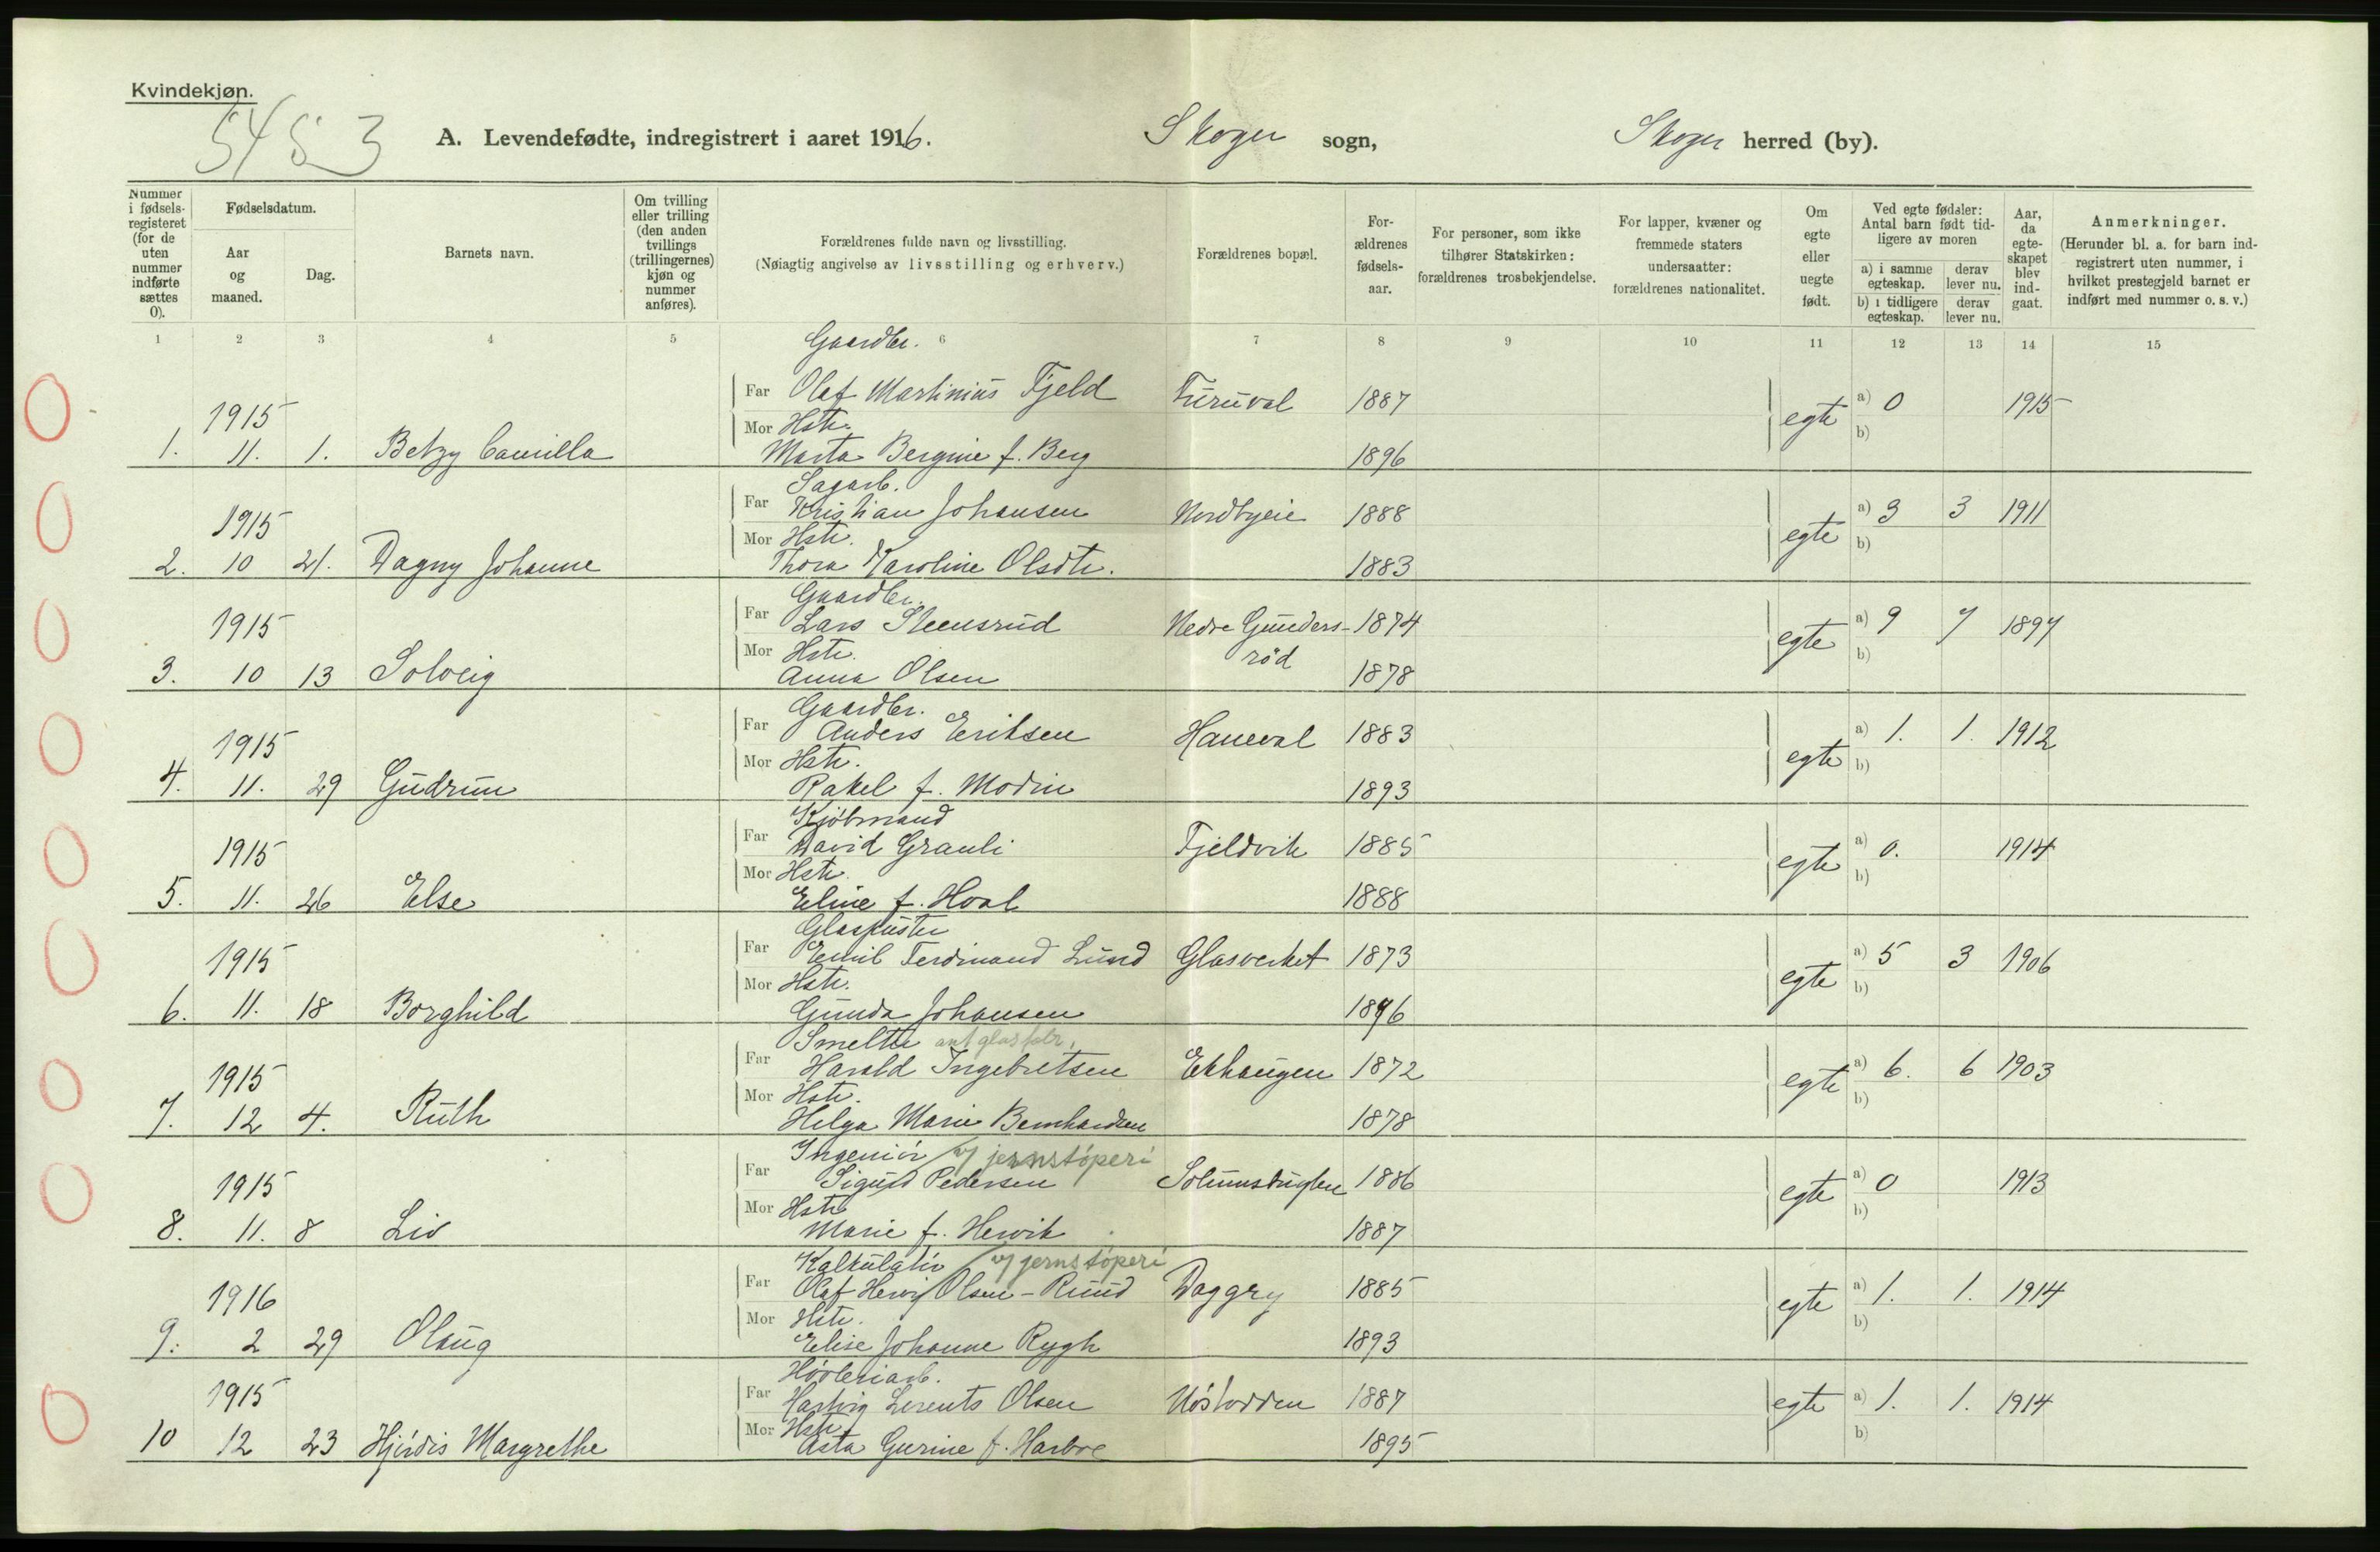 Kvindekjøn.
5483
A. Levendefødte, indregistrert i aaret 1916. Skoger sogn, Skoger herred (by).
Nummer i fødselsregisteret (for de uten nummer indførte sættes 0).
Fødselsdatum.
Aar og maaned.
Dag.
Barnets navn.
Om tvilling eller trilling (den anden tvillings (trillingernes) kjøn og nummer anføres).
Forældrenes fulde navn og livsstilling.
(Nøiagtig angivelse av livsstilling og erhverv.)
Forældrenes bopæl.
Forældrenes fødselsaar.
For personer, som ikke tilhører Statskirken: forældrenes trosbekjendelse.
For lapper, kvæner og fremmede staters undersaatter: forældrenes nationalitet.
Om egte eller uegte født.
Ved egte fødsler: Antal barn født tidligere av moren
a) i samme egteskap. derav lever nu.
b) i tidligere egteskap. derav lever nu.
Aar, da egteskapet blev indgaat.
Anmerkninger.
(Herunder bl. a. for barn indregistrert uten nummer, i hvilket prestegjeld barnet er indført med nummer o. s. v.)
1 2 3 4 5 6 7 8 9 10 11 12 13 14 15
Gaardbr.
1915 Far Olaf Martinius Fjeld Furuval 1887 egte a) 0 1915
Mor Hstr. b)
1. 11. 1. Betzy Camilla Marta Bergine f. Berg 1896
Sagarb.
1915 Far Kristian Johansen Nordbyeie 1888 egte a) 3 3 1911
Mor Hstr. b)
2. 10 21. Dagny Johanne Thora Karoline Olsdtr. 1883
Gaardbr.
1915 Far Lars Steensrud Nedre Gunders- 1874 egte a) 9 7 1897
Mor Hstr. röd b)
3. 10 13 Solveig Anna Olsen 1878
Gaardbr.
1915 Far Anders Eriksen Haneval 1883 egte a) 1. 1. 1912
Mor Hstr. b)
4. 11. 29 Gudrun Rakel f. Modin 1893
Kjöbmand
1915 Far David Granli Fjeldvik 1885 egte a) 0. 1914
Mor Hstr. b)
5. 11. 26 Else Eline f. Hoal 1888
Glaspuster
1915 Far Emil Ferdinand Lund Glasverket 1873 egte a) 5 3 1906
Mor Hstr. b)
6. 11. 18 Borghild Gunda Johansen 1876
Smelter
1915 Far Harald Ingebretsen Ekhaugen 1872 egte a) 6. 6 1903
Mor Hstr. b)
7. 12 4. Ruth Helga Marie Bernhardsen 1878
Ingeniör v/ jernstöperi
1915 Far Sigurd Pedersen Solumsbugten 1886 egte a) 0 1913
Mor Hstr b)
8. 11. 8 Liv Marie f. Hervik 1887
Kalkulatör v/ jernstöperi
1916 Far Olaf Henry Olsen-Ruud Daggry 1885 egte a) 1. 1. 1914
Mor Hstr. b)
9. 2 29 Olaug Elise Johanne Rygh 1893
Hövleriarb.
1915 Far Hartvig Lorents Olsen Nöstodden 1887 egte a) 1. 1. 1914
Mor Hstr b)
10 12 23 Hjördis Margrethe Asta Gurine f. Harboe 1895